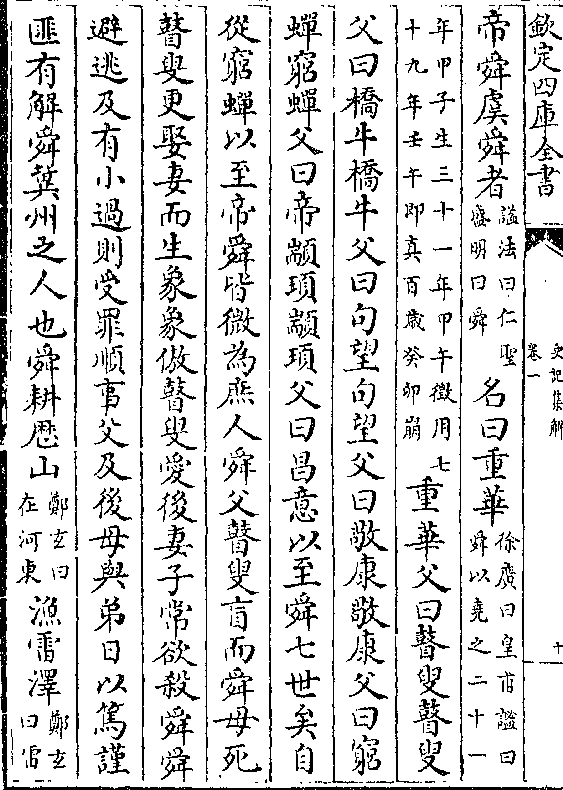 欽定四庫全書
史記集解
卷一
十
帝舜虞舜者諡法曰仁聖盛明曰舜名曰重華徐廣曰皇甫謐曰舜以堯之二十一
年甲子生三十一年甲午徵用七十九年壬午即真百歲癸卯崩重華父曰瞽叟瞽叟
父曰橋牛橋牛父曰句望句望父曰敬康敬康父曰窮
蟬窮蟬父曰帝顓頊顓頊父曰昌意以至舜七世矣自
從窮蟬以至帝舜皆微為庶人舜父瞽叟盲而舜母死
瞽叟更娶妻而生象象傲瞽叟愛後妻子常欲殺舜舜
避逃及有小過則受罪順事父及後母與弟日以篤謹
匪有解舜冀州之人也舜耕厯山鄭玄曰在河東漁雷澤鄭玄曰雷